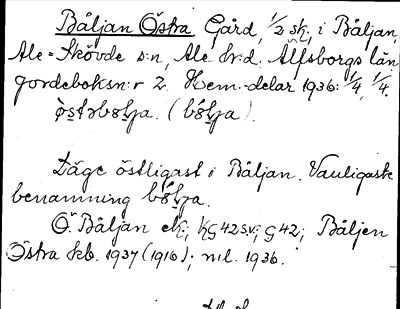 Båljan Östra Gård, 1/2 sk, i Båljan,
Ale-Skövde s:n, Ale hrd. Älfsborgs län
jordeboksn:r 2. Hem.-delar 1936: 1/4, 1/4.
(bö́lja).
Läge östligast i Båljan. Vanligaste
benämning
Ö. Båljan ek; G 42 s.v.; G 42; Båljen
Östra kb. 1937 (1916); ml. 1936.